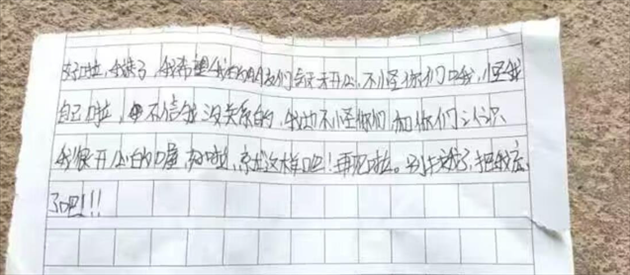 好啦,我走了,我希望我的朋友们每天开心,不怪你们哎我,怪我
自己啦,不信我没关系的,我也不怪你们,和你们认识
我很开心的哩 好啦,就这样吧!再见啦。别找我了,把我忘
了吧!!!